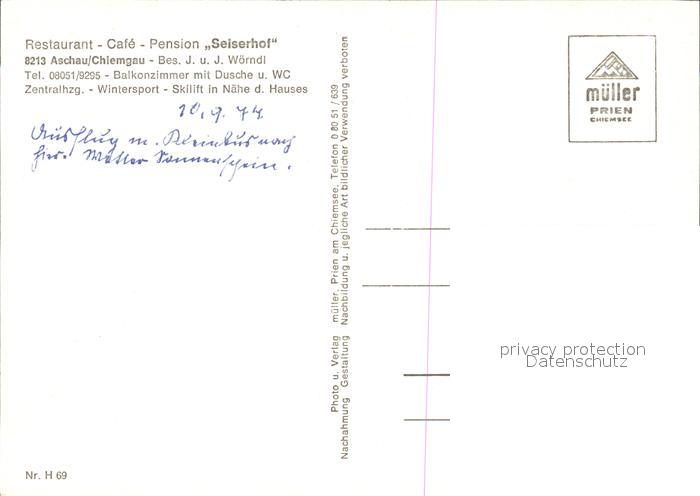 Restaurant - Café - Pension „Seiserhof"
8213 Aschau/Chiemgau - Bes. J. u. J. Wörndl
Tel. 08051/9295 - Balkonzimmer mit Dusche u. WC
Zentralhzg. - Wintersport - Skilift in Nähe d. Hauses
10.9.74
Ausflug m. Kleinbus nach
hier. Wetter Sonnenschein.
Photo u. Verlag müller, Prien am Chiemsee, Telefon 0 80 51 / 639
Nachahmung Gestaltung Nachbildung u. jegliche Art bildlicher Verwendung verboten
müller
PRIEN
CHIEMSEE
privacy protection
Datenschutz
Nr. H 69